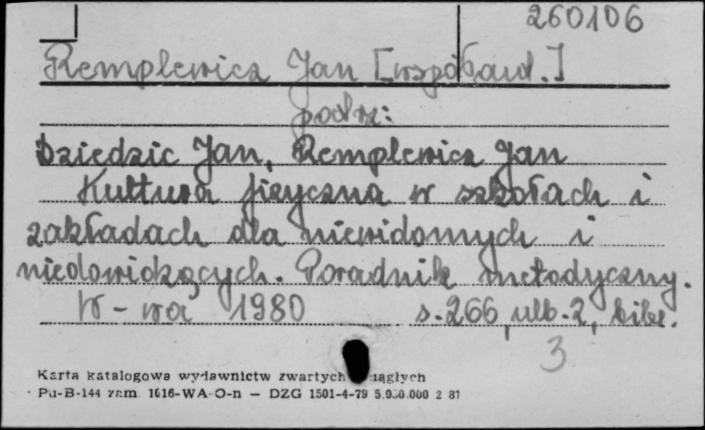 260106
Remplewicz Jan [współaut.]
podrz:
Dziedzic Jan, Remplewicz Jan
Kultura fizyczna w szkołach i
zakładach dla niewidomych i
niedowidzących. Poradnik metodyczny.
W-wa 1980 s. 266, ulb. 2, bibl.
3
Karta katalogowa wydawnictw zwartych ciągłych
Pu-B-144 zam. 1616-WA-O-n — DZG 1501-4-79 5.000.000 2 81